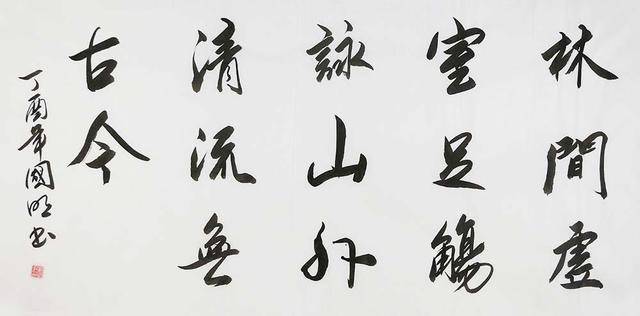 林間虛
室足觴
詠山外
清流無
古今
丁酉年國明书